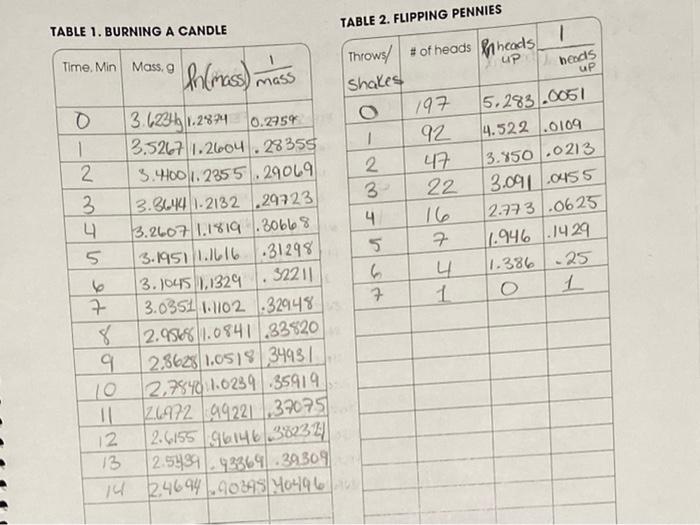 TABLE 1. BURNING A CANDLE
Time, Min Mass, g ln(mass) 1/mass
0 3.6234g 1.2874 0.2759
1 3.5267 1.2604 .28355
2 3.4400 1.2355 .29069
3 3.3644 1.2132 .29723
4 3.2607 1.1819 .30668
5 3.1951 1.1616 .31298
6 3.1045 1.1329 .32211
7 3.0351 1.1102 .32948
8 2.9568 1.0841 .33820
9 2.8628 1.0518 .34931
10 2.7840 1.0239 .35919
11 2.6972 .99221 .37075
12 2.6155 .96146
13 2.5439 .93369 .39309
14 2.4694 .90398 .40496
TABLE 2. FLIPPING PENNIES
Throws/ Shakes # of heads ln heads up 1/heads up
0 197 5.283 .0051
1 92 4.522 .0109
2 47 3.850 .0213
3 22 3.091 .0455
4 16 2.773 .0625
5 7 1.946 .1429
6 4 1.386 .25
7 1 0 1